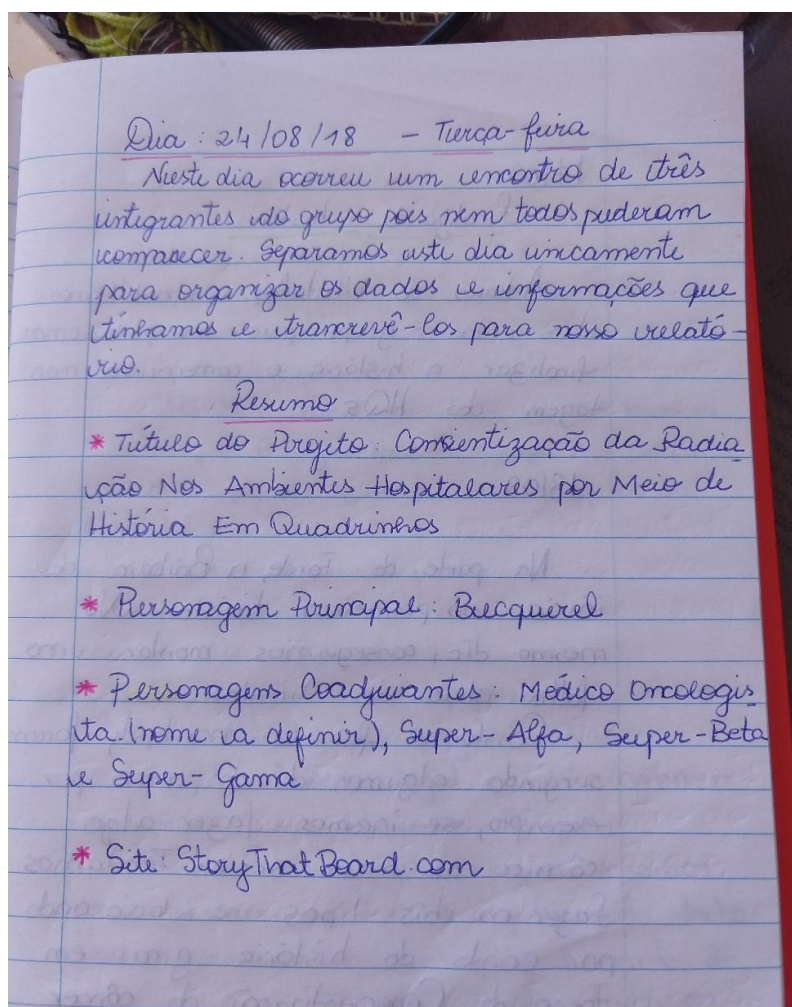 Dia : 24/08/18 - Terça-feira
Neste dia ocorreu um encontro de três
integrantes do grupo pois nem todos puderam
comparecer. Separamos este dia unicamente
para organizar os dados e informações que
tínhamos e trancrevê-los para nosso relató-
rio.
Resumo
* Título do Projeto: Consientização da Radia
ção Nos Ambientes Hospitalares por Meio de
História Em Quadrinhos
* Personagem Principal: Becquerel
* Personagens Coadjuvantes: Médico Oncologis
ta (nome a definir), Super-Alfa, Super-Beta
e Super-Gama
* Site: StoryThatBoard.com